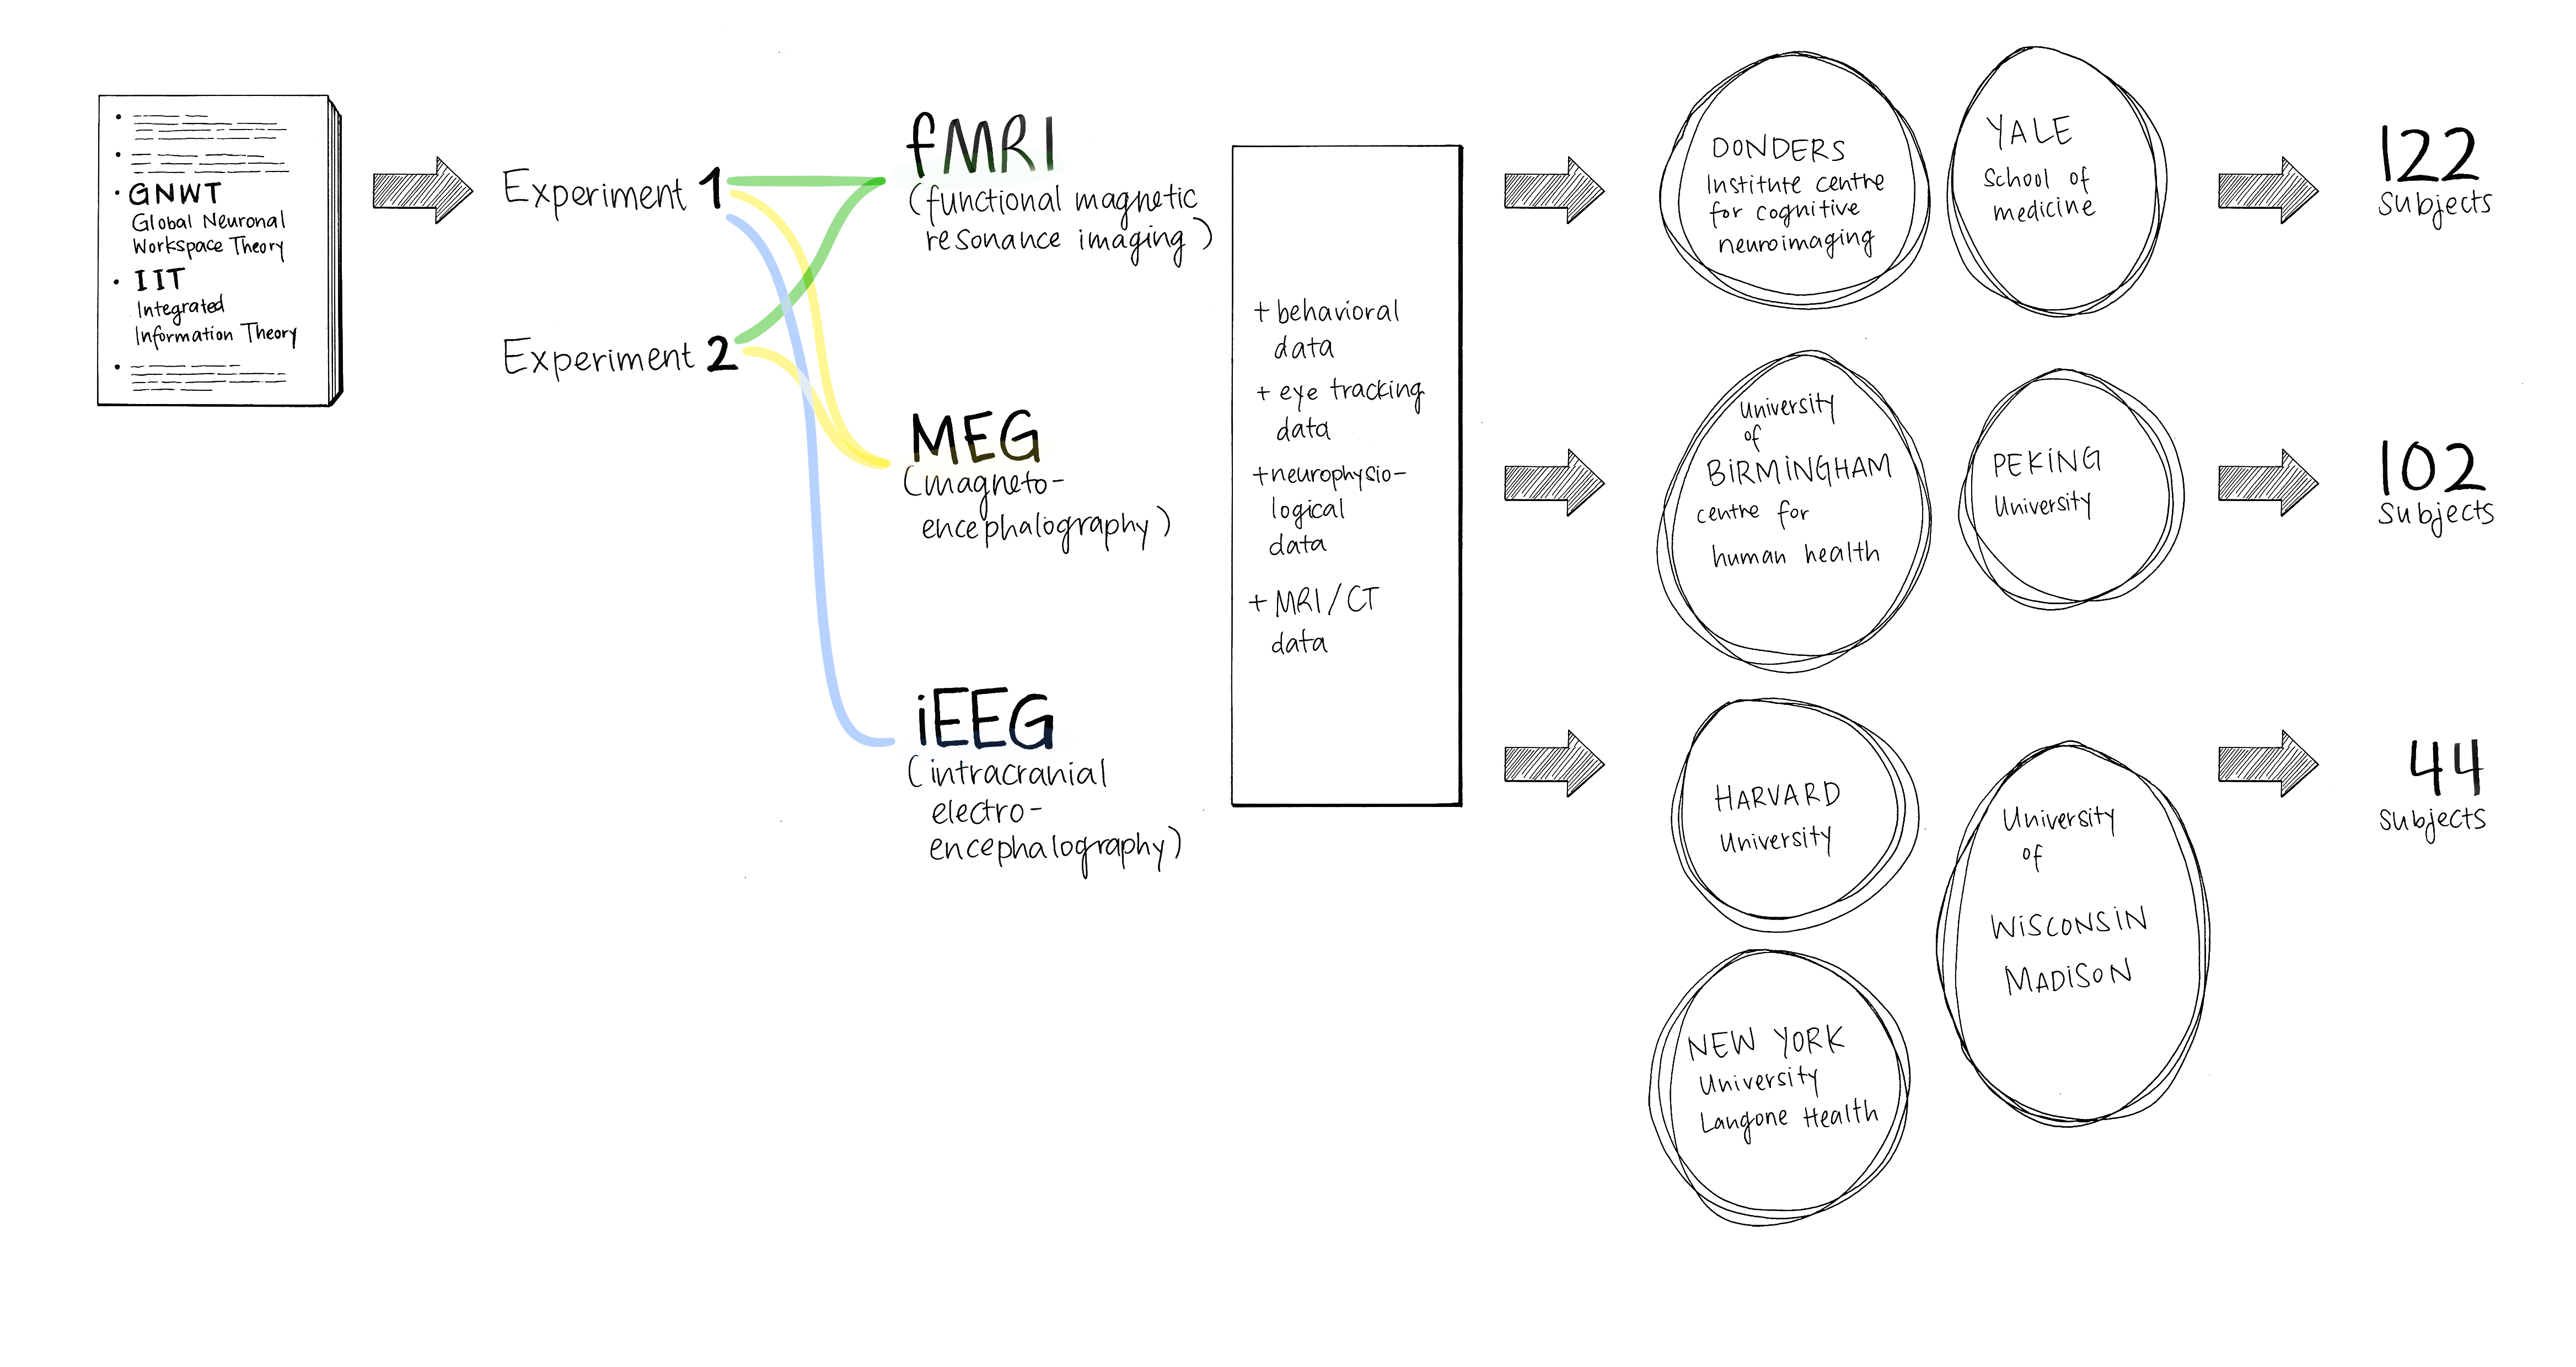 • GNWT
Global Neuronal
Workspace Theory
• IIT
Integrated
Information Theory
Experiment 1
Experiment 2
fMRI
(functional magnetic
resonance imaging)
MEG
(magneto-
encephalography)
iEEG
(intracranial
electro-
encephalography)
+ behavioral
data
+ eye tracking
data
+ neurophysio-
logical
data
+ MRI/CT
data
DONDERS
Institute centre
for cognitive
neuroimaging
YALE
School of
medicine
122
subjects
University
of
BIRMINGHAM
centre for
human health
PEKING
University
102
subjects
HARVARD
University
University
of
WISCONSIN
MADISON
44
subjects
NEW YORK
University
Langone Health